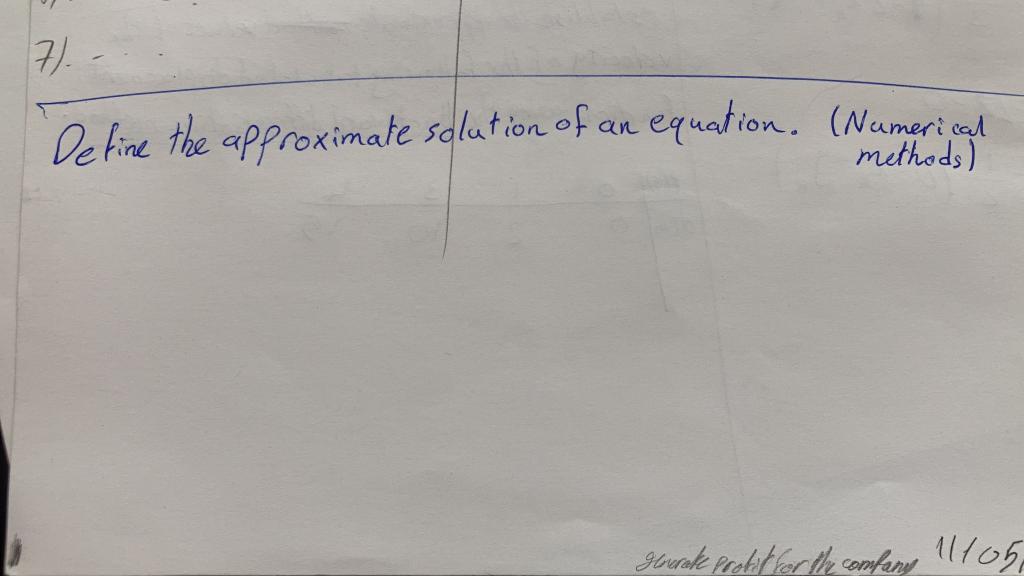 7). -
Define the approximate solution of an equation. (Numerical
methods)
profit for the company 11/05